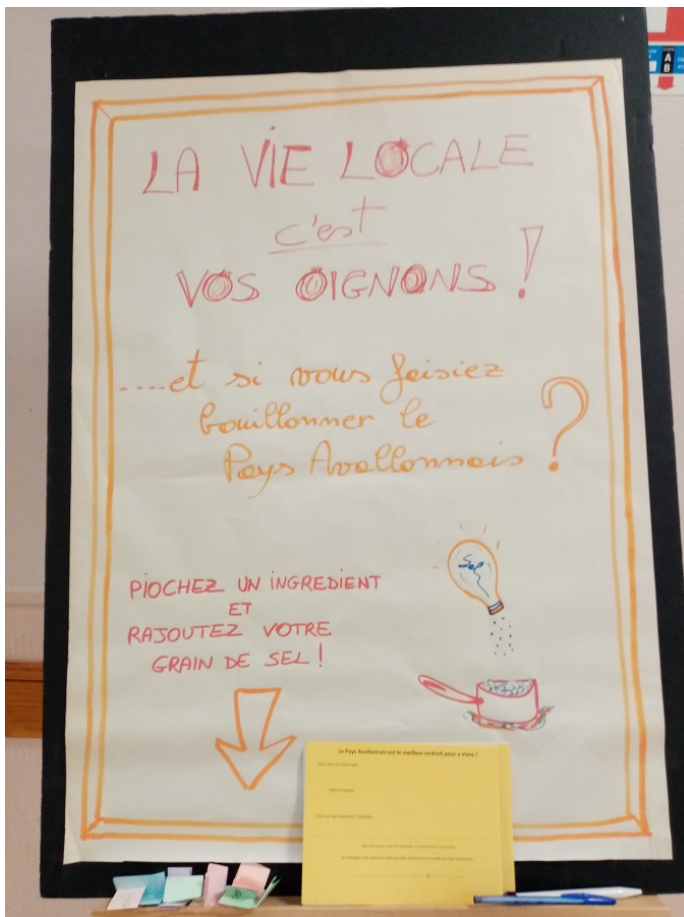 LA VIE LOCALE
c'est
VOS OIGNONS !
....et si vous faisiez
bouillonner le
Pays Avallonnais ?
Sel
PIOCHEZ UN INGREDIENT
ET
RAJOUTEZ VOTRE
GRAIN DE SEL !
Le Pays Avallonnais est le meilleur endroit pour y vivre !
A
B